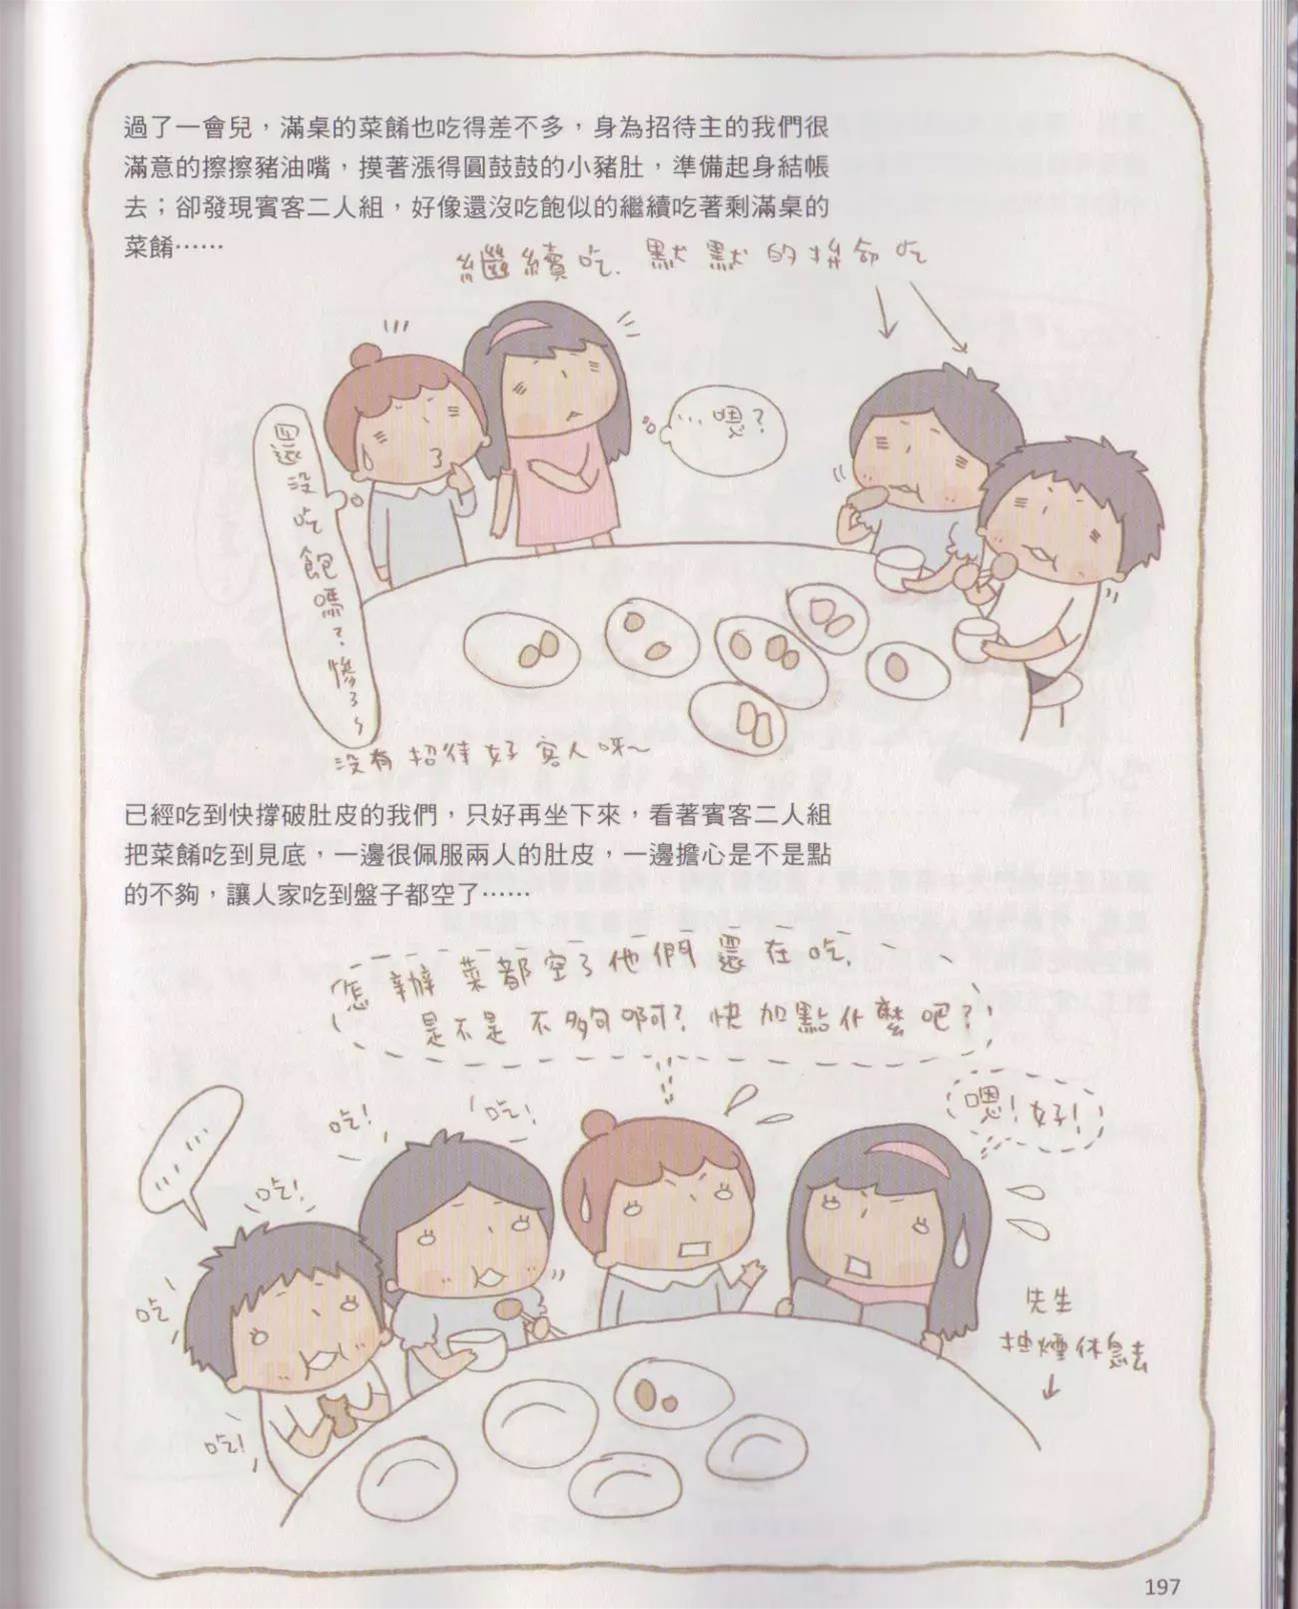 過了一會兒，滿桌的菜餚也吃得差不多，身為招待主的我們很
滿意的擦擦豬油嘴，摸著漲得圓鼓鼓的小豬肚，準備起身結帳
去；卻發現賓客二人組，好像還沒吃飽似的繼續吃著剩滿桌的
菜餚……
繼續吃. 默默的拚命吃
…嗯?
還沒吃飽嗎?慘了~
沒有招待好客人呀~
已經吃到快撐破肚皮的我們，只好再坐下來，看著賓客二人組
把菜餚吃到見底，一邊很佩服兩人的肚皮，一邊擔心是不是點
的不夠，讓人家吃到盤子都空了……
怎辦 菜都空了他們還在吃.
是不是不夠啊? 快加點什麼吧?
嗯! 好!
......
吃!
吃!
吃!
吃!
吃!
先生
抽煙休息去
197